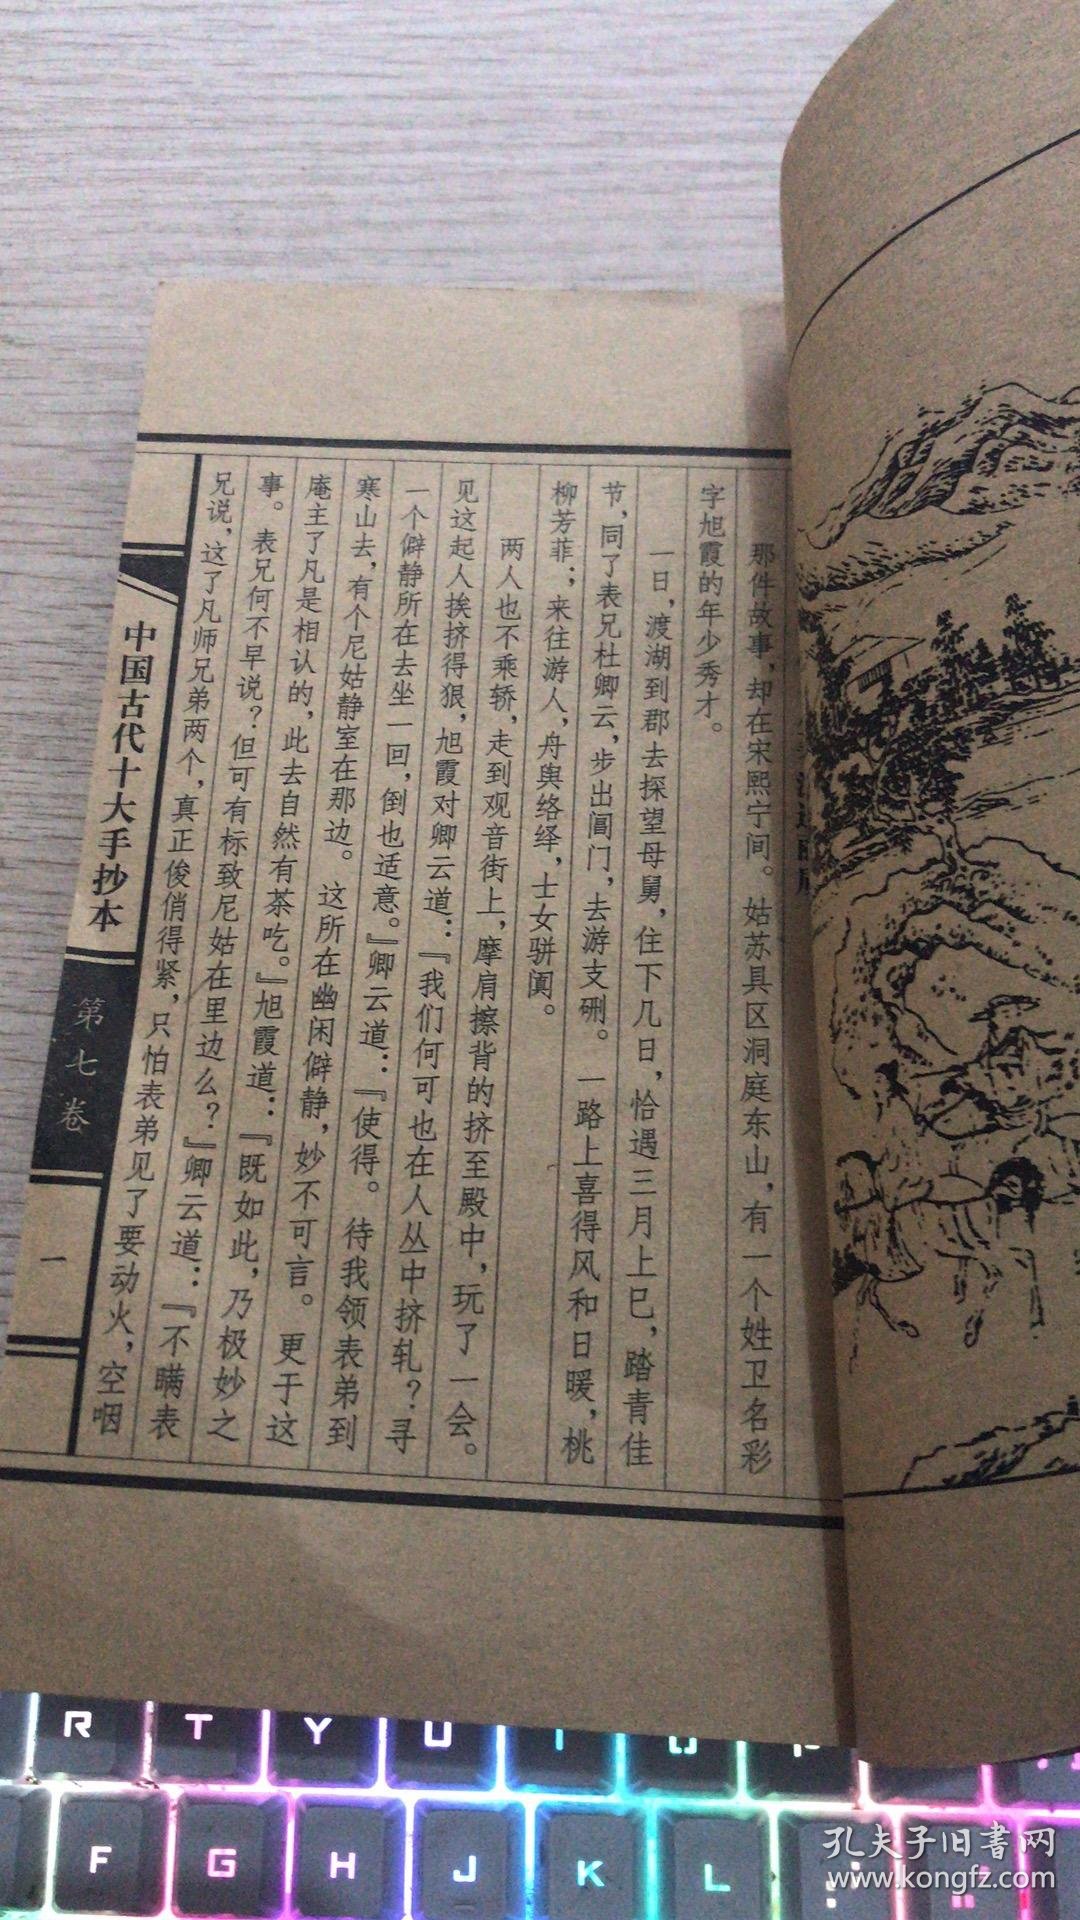 那件故事，却在宋熙宁间。姑苏具区洞庭东山，有一个姓卫名彩
字旭霞的年少秀才。
一日，渡湖到郡去探望母舅，住下几日，恰遇三月上巳，踏青佳
节，同了表兄杜卿云，步出阊门，去游支硎。一路上喜得风和日暖，桃
柳芳菲；来往游人，舟舆络绎，士女骈阗。
两人也不乘轿，走到观音街上，摩肩擦背的挤至殿中，玩了一会。
见这起人挨挤得狠，旭霞对卿云道：『我们何可也在人丛中挤轧？寻
一个僻静所在去坐一回，倒也适意。』卿云道：『使得。待我领表弟到
寒山去，有个尼姑静室在那边。这所在幽闲僻静，妙不可言。更于这
庵主了凡是相认的，此去自然有茶吃。』旭霞道：『既如此，乃极妙之
事。表兄何不早说？但可有标致尼姑在里边么？』卿云道：『不瞒表
兄说，这了凡师兄弟两个，真正俊俏得紧，只怕表弟见了要动火，空咽
中国古代十大手抄本
第七卷
一
R T Y U I O P
F G H J K L
孔夫子旧書网
www.kongfz.com